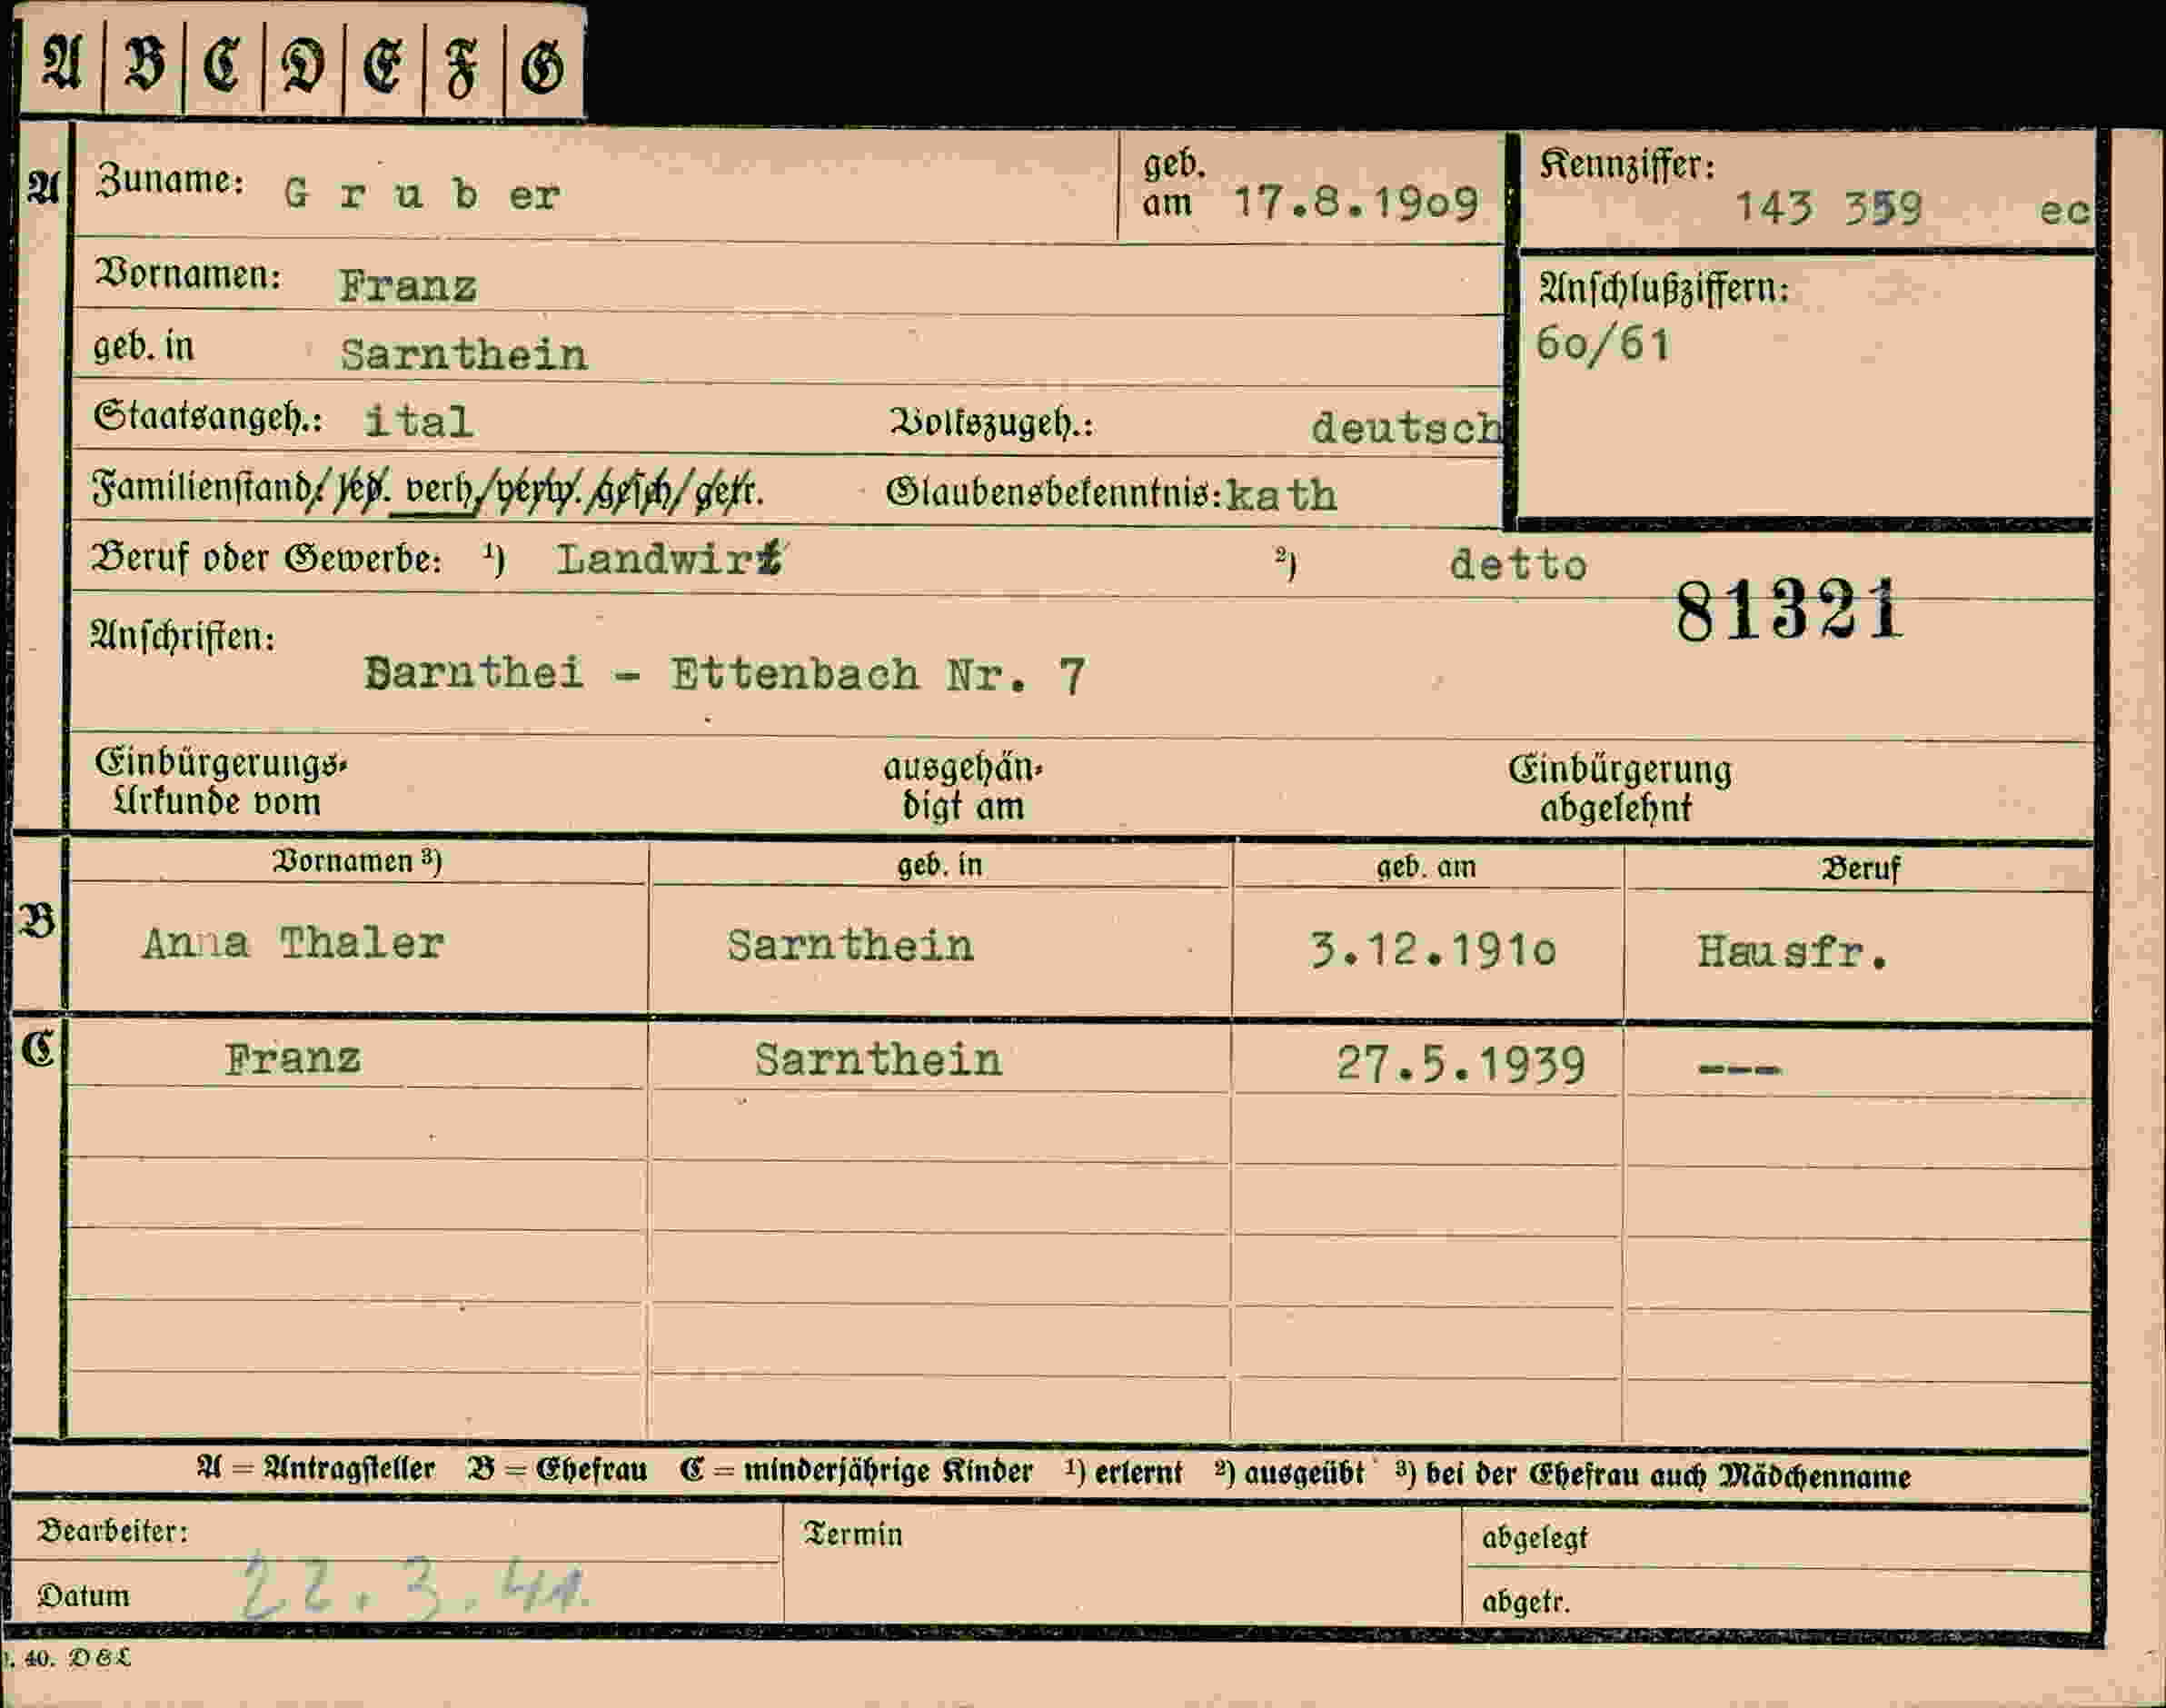 A B C D E F G
A Zuname: G r u b er geb. am 17.8.19o9 Kennziffer: 143 359 ec
Vornamen: Franz
Anschlußziffern:
6o/61
geb. in Sarnthein
Staatsangeh.: ital Volkszugeh.: deutsch
Familienstand: led. verh./verw./gesch/getr. Glaubensbekenntnis: kath
Beruf oder Gewerbe: ¹) Landwirt ²) detto
81321
Anschriften:
Sarnthei - Ettenbach Nr. 7
Einbürgerungs-
Urkunde vom
ausgehän-
digt am
Einbürgerung
abgelehnt
Vornamen ³) geb. in geb. am Beruf
B Anna Thaler Sarnthein 3.12.191o Hausfr.
C Franz Sarnthein 27.5.1939 ---
A = Antragsteller B = Ehefrau C = minderjährige Kinder ¹) erlernt ²) ausgeübt ³) bei der Ehefrau auch Mädchenname
Bearbeiter: Termin abgelegt
Datum 22.3.41. abgetr.
40. D&L